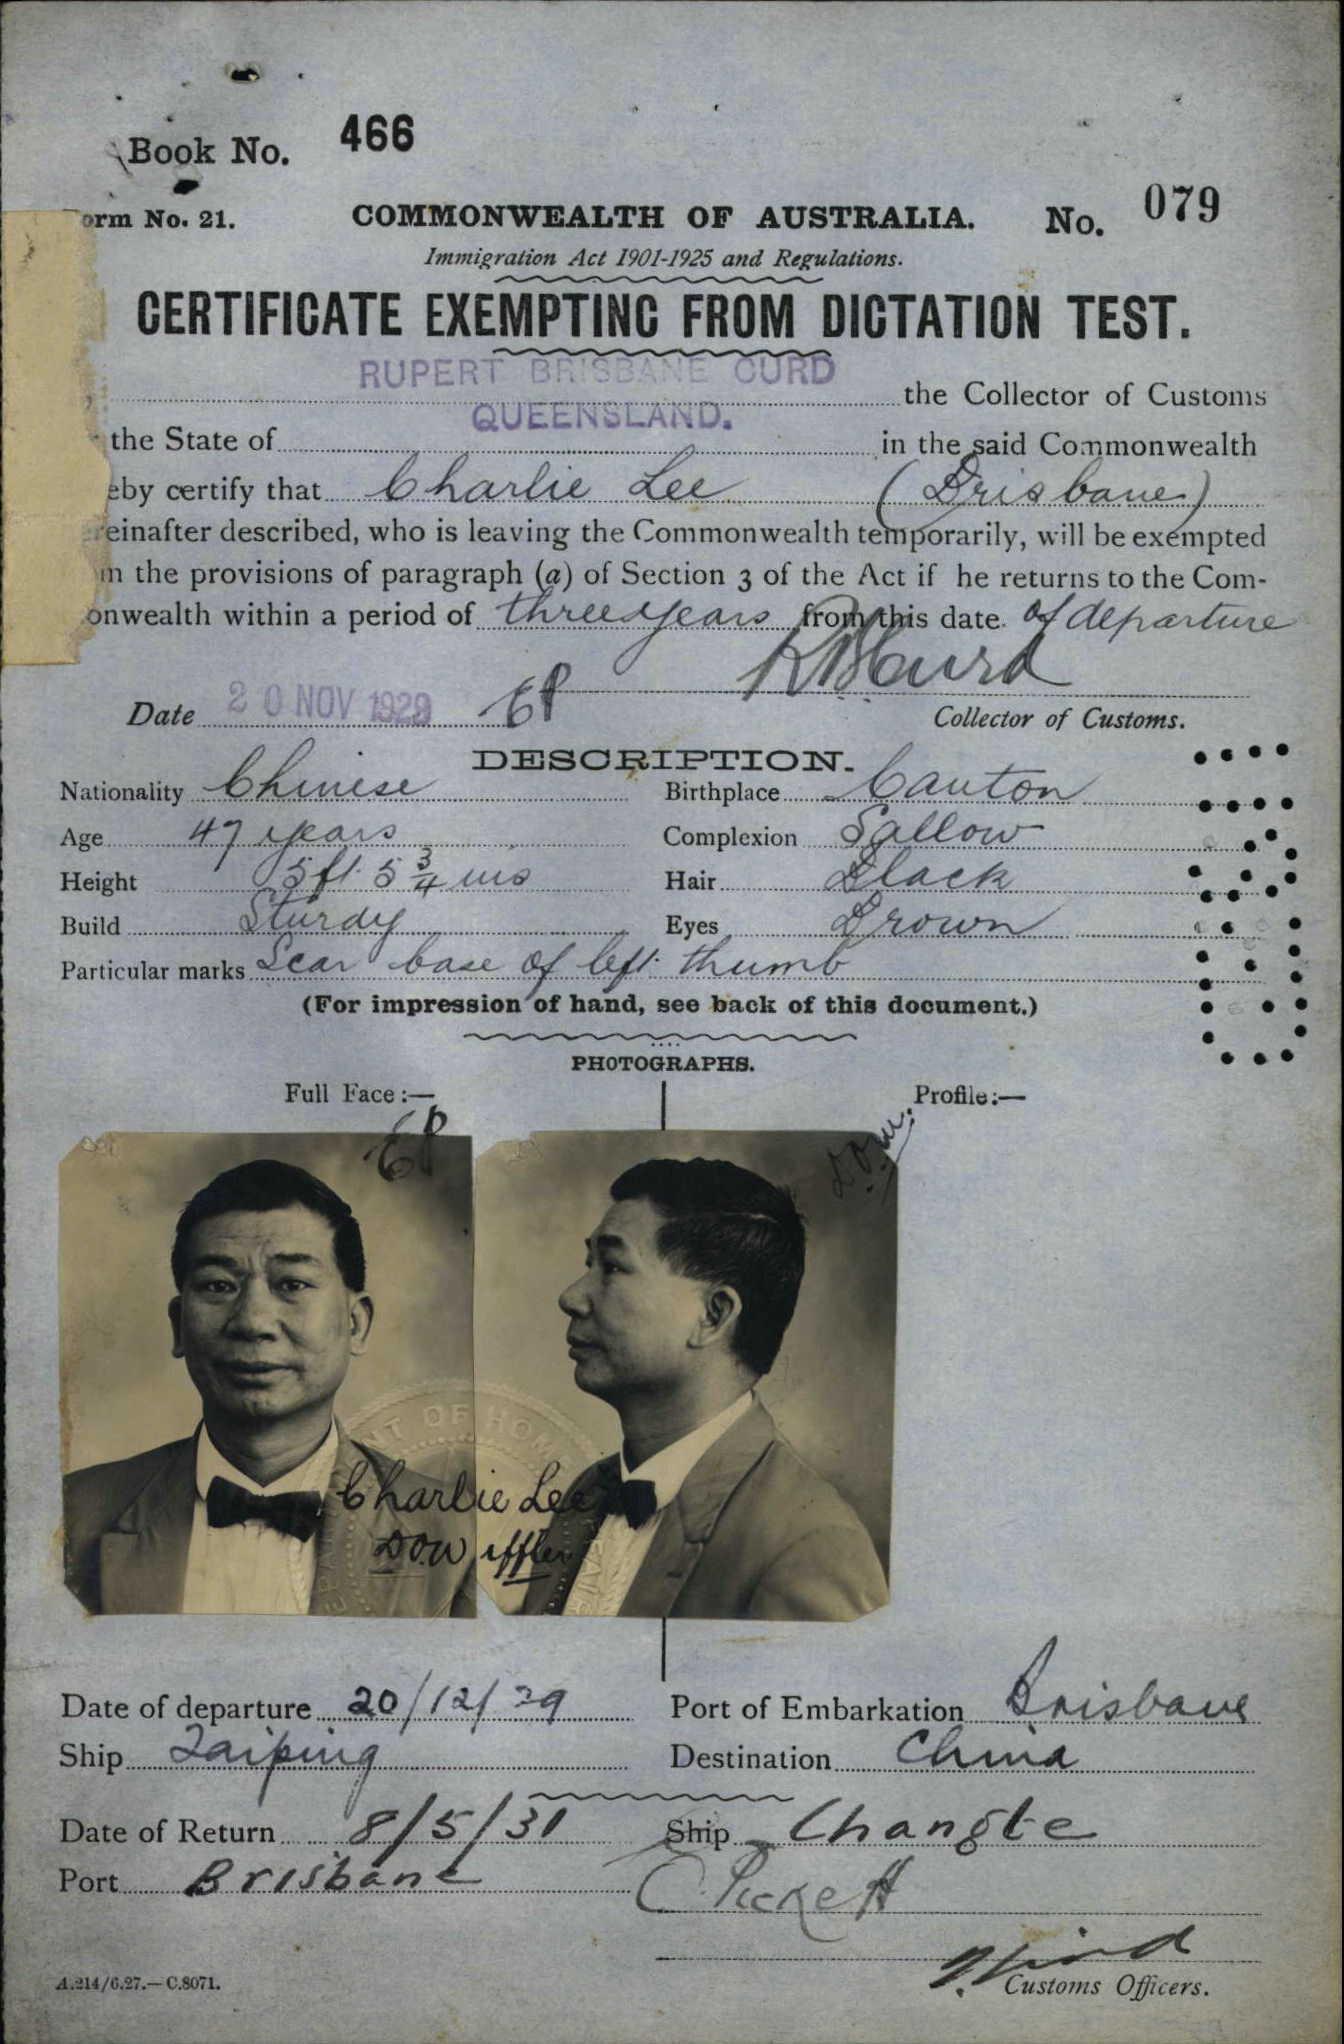 Book No. 466
orm No. 21. COMMONWEALTH OF AUSTRALIA. No. 079
Immigration Act 1901-1925 and Regulations.
CERTIFICATE EXEMPTING FROM DICTATION TEST.
RUPERT BRISBANE CURD the Collector of Customs
the State of QUEENSLAND. in the said Commonwealth
eby certify that Charlie Lee (Brisbane)
ereinafter described, who is leaving the Commonwealth temporarily, will be exempted
m the provisions of paragraph (a) of Section 3 of the Act if he returns to the Com-
onwealth within a period of three years from this date of departure
RBCurd
Date 20 NOV 1929 EP Collector of Customs.
DESCRIPTION.
Nationality Chinese Birthplace Canton
Age 47 years Complexion Sallow
Height 5ft 5 3/4 ins Hair Black
Build Sturdy Eyes Brown
Particular marks Scar base of left thumb
(For impression of hand, see back of this document.)
PHOTOGRAPHS.
Full Face:— Profile:—
EP
NT OF HOM
Charlie Lee
Date of departure 20/12/29 Port of Embarkation Brisbane
Ship Taiping Destination China
Date of Return 8/5/31 Ship Changte
Port Brisbane C. Pickett
A.214/6.27.—C.8071. Customs Officers.